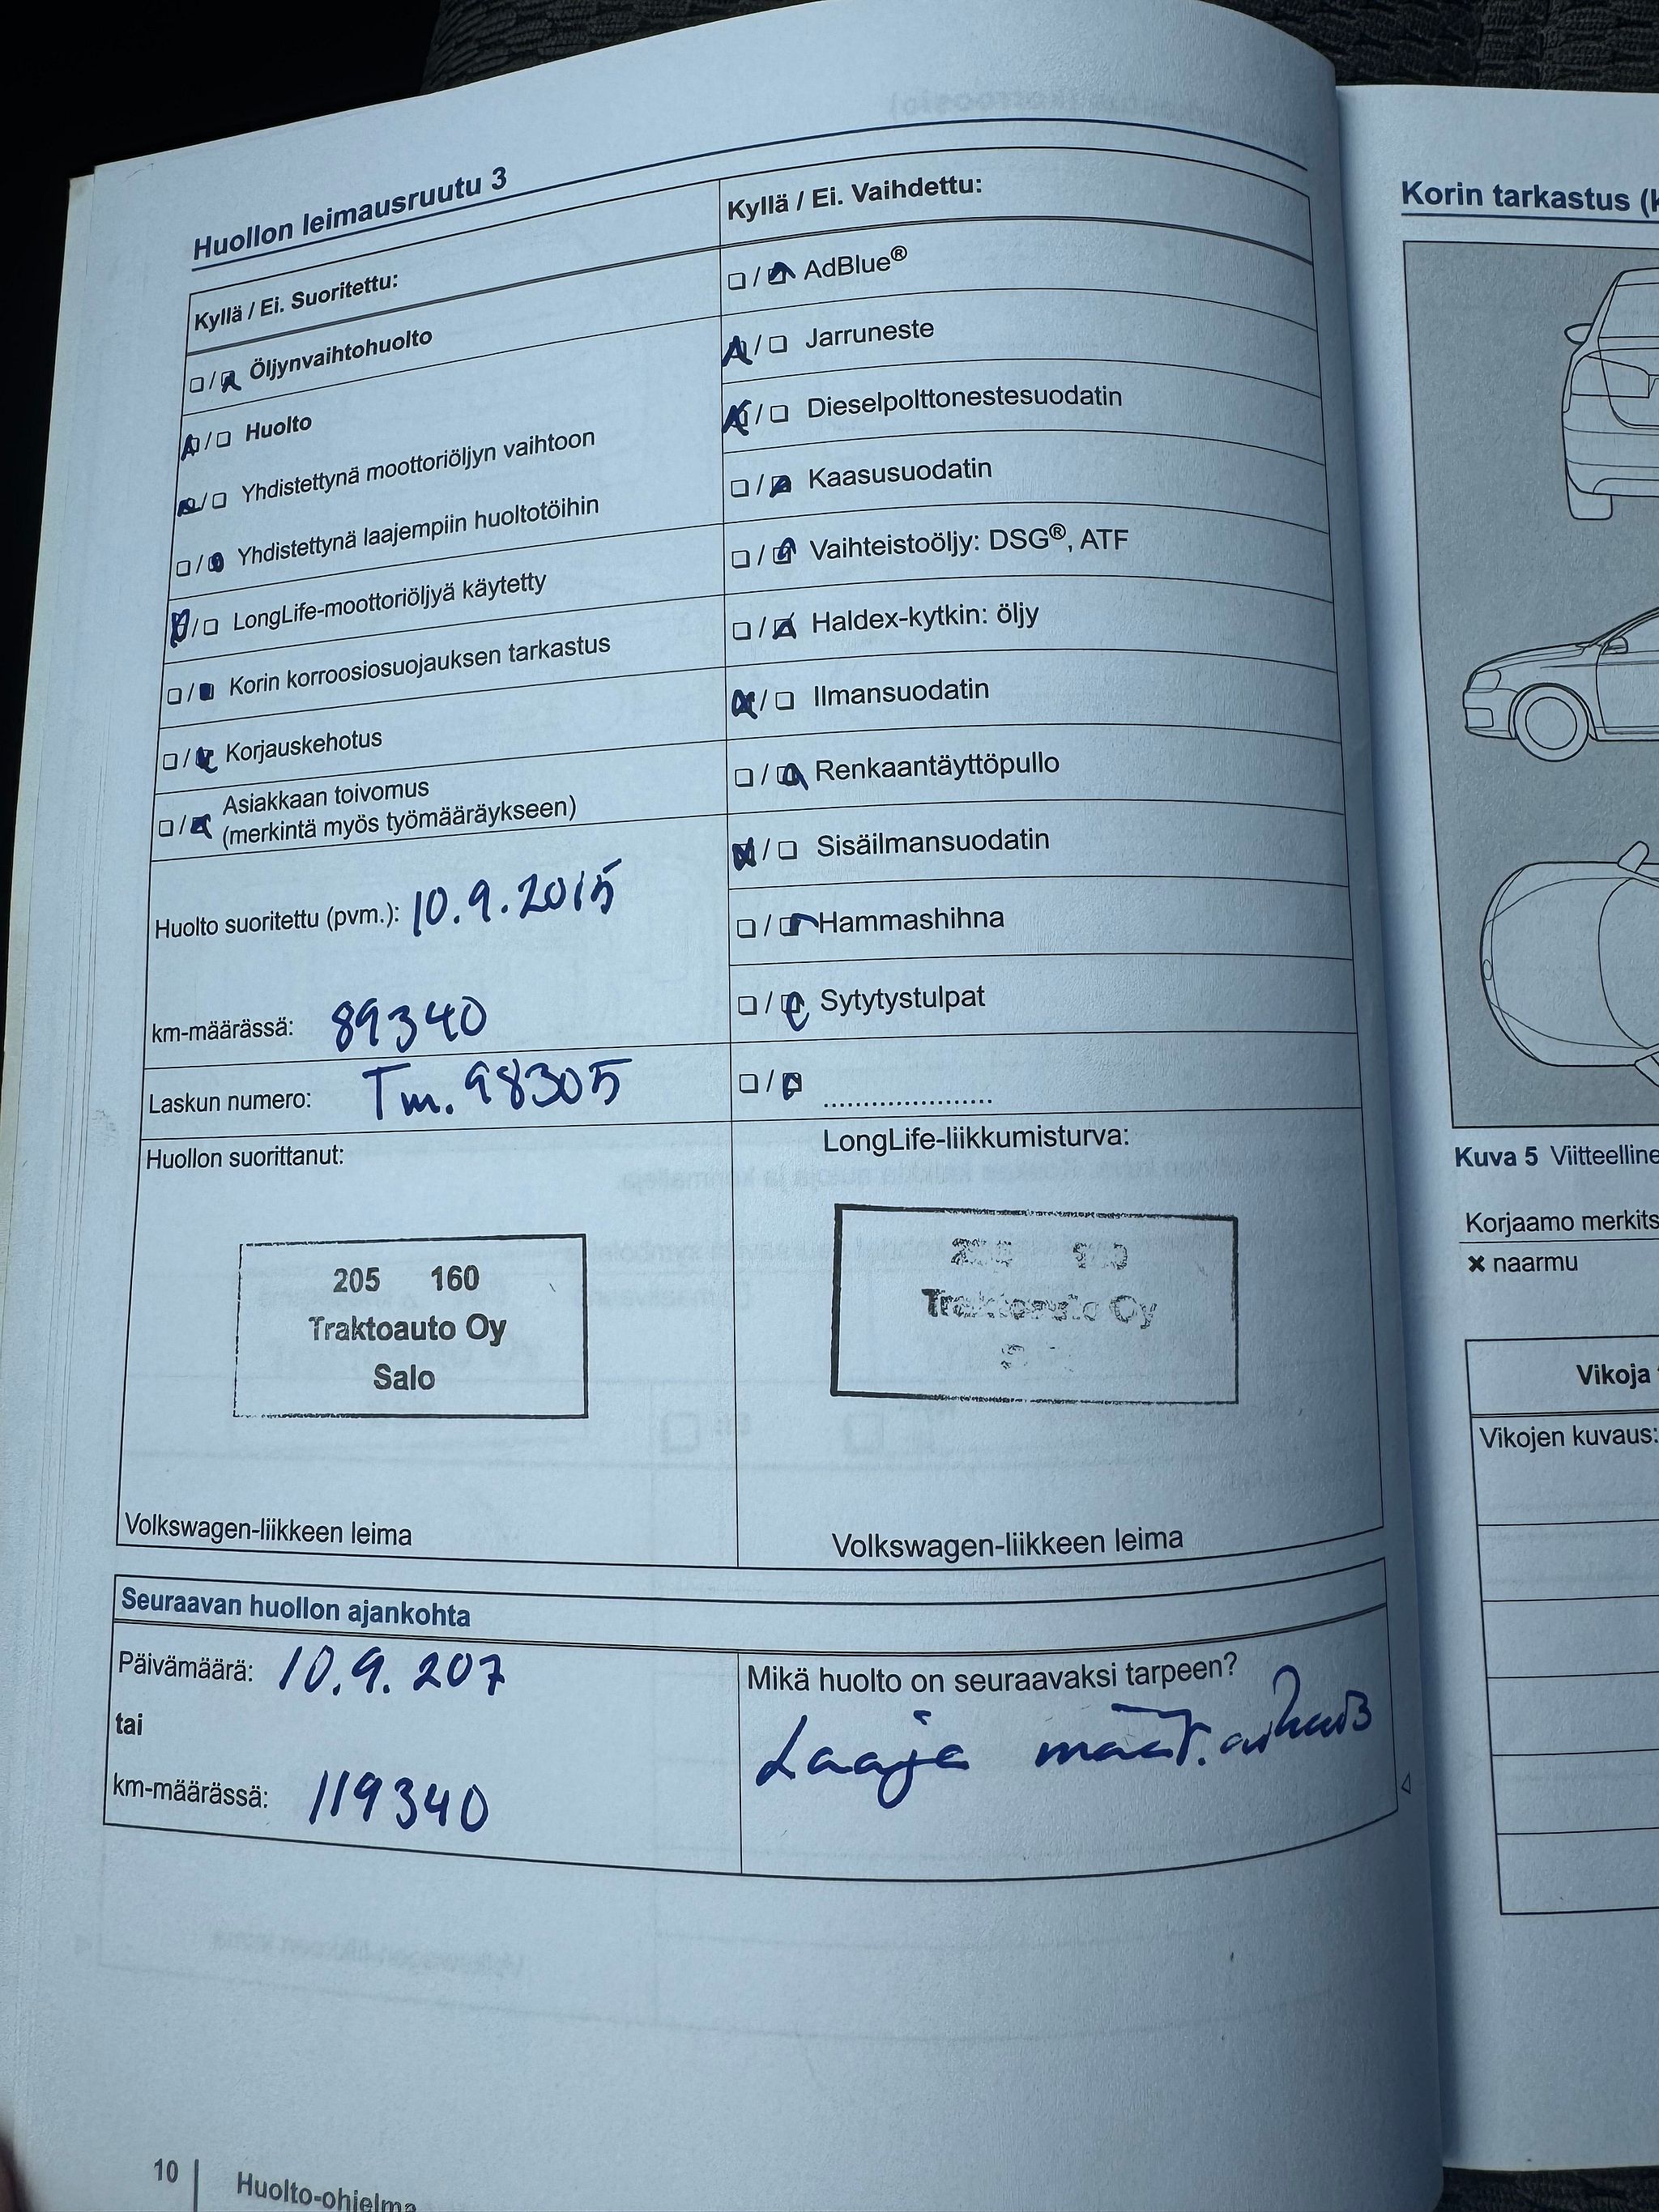 Huollon leimausruutu 3
Kyllä / Ei. Suoritettu:
Öljynvaihtohuolto
Huolto
Yhdistettynä moottoriöljyn vaihtoon
Yhdistettynä laajempiin huoltotöihin
LongLife-moottoriöljyä käytetty
Korin korroosiosuojauksen tarkastus
Korjauskehotus
Asiakkaan toivomus
(merkintä myös työmääräykseen)
Huolto suoritettu (pvm.): 10.9.2015
km-määrässä: 89340
Laskun numero: Tm. 98305
Huollon suorittanut:
205 160
Traktoauto Oy
Salo
Volkswagen-liikkeen leima
Kyllä / Ei. Vaihdettu:
AdBlue®
Jarruneste
Dieselpolttonestesuodatin
Kaasusuodatin
Vaihteistoöljy: DSG®, ATF
Haldex-kytkin: öljy
Ilmansuodatin
Renkaantäyttöpullo
Sisäilmansuodatin
Hammashihna
Sytytystulpat
LongLife-liikkumisturva:
Traktoauto Oy
Volkswagen-liikkeen leima
Seuraavan huollon ajankohta
Päivämäärä: 10.9.207
tai
km-määrässä: 119340
Mikä huolto on seuraavaksi tarpeen?
Laaja
10 Huolto-ohjelma
Korin tarkastus
Kuva 5
Korjaamo
× naarmu
Vikoja
Vikojen kuvaus: